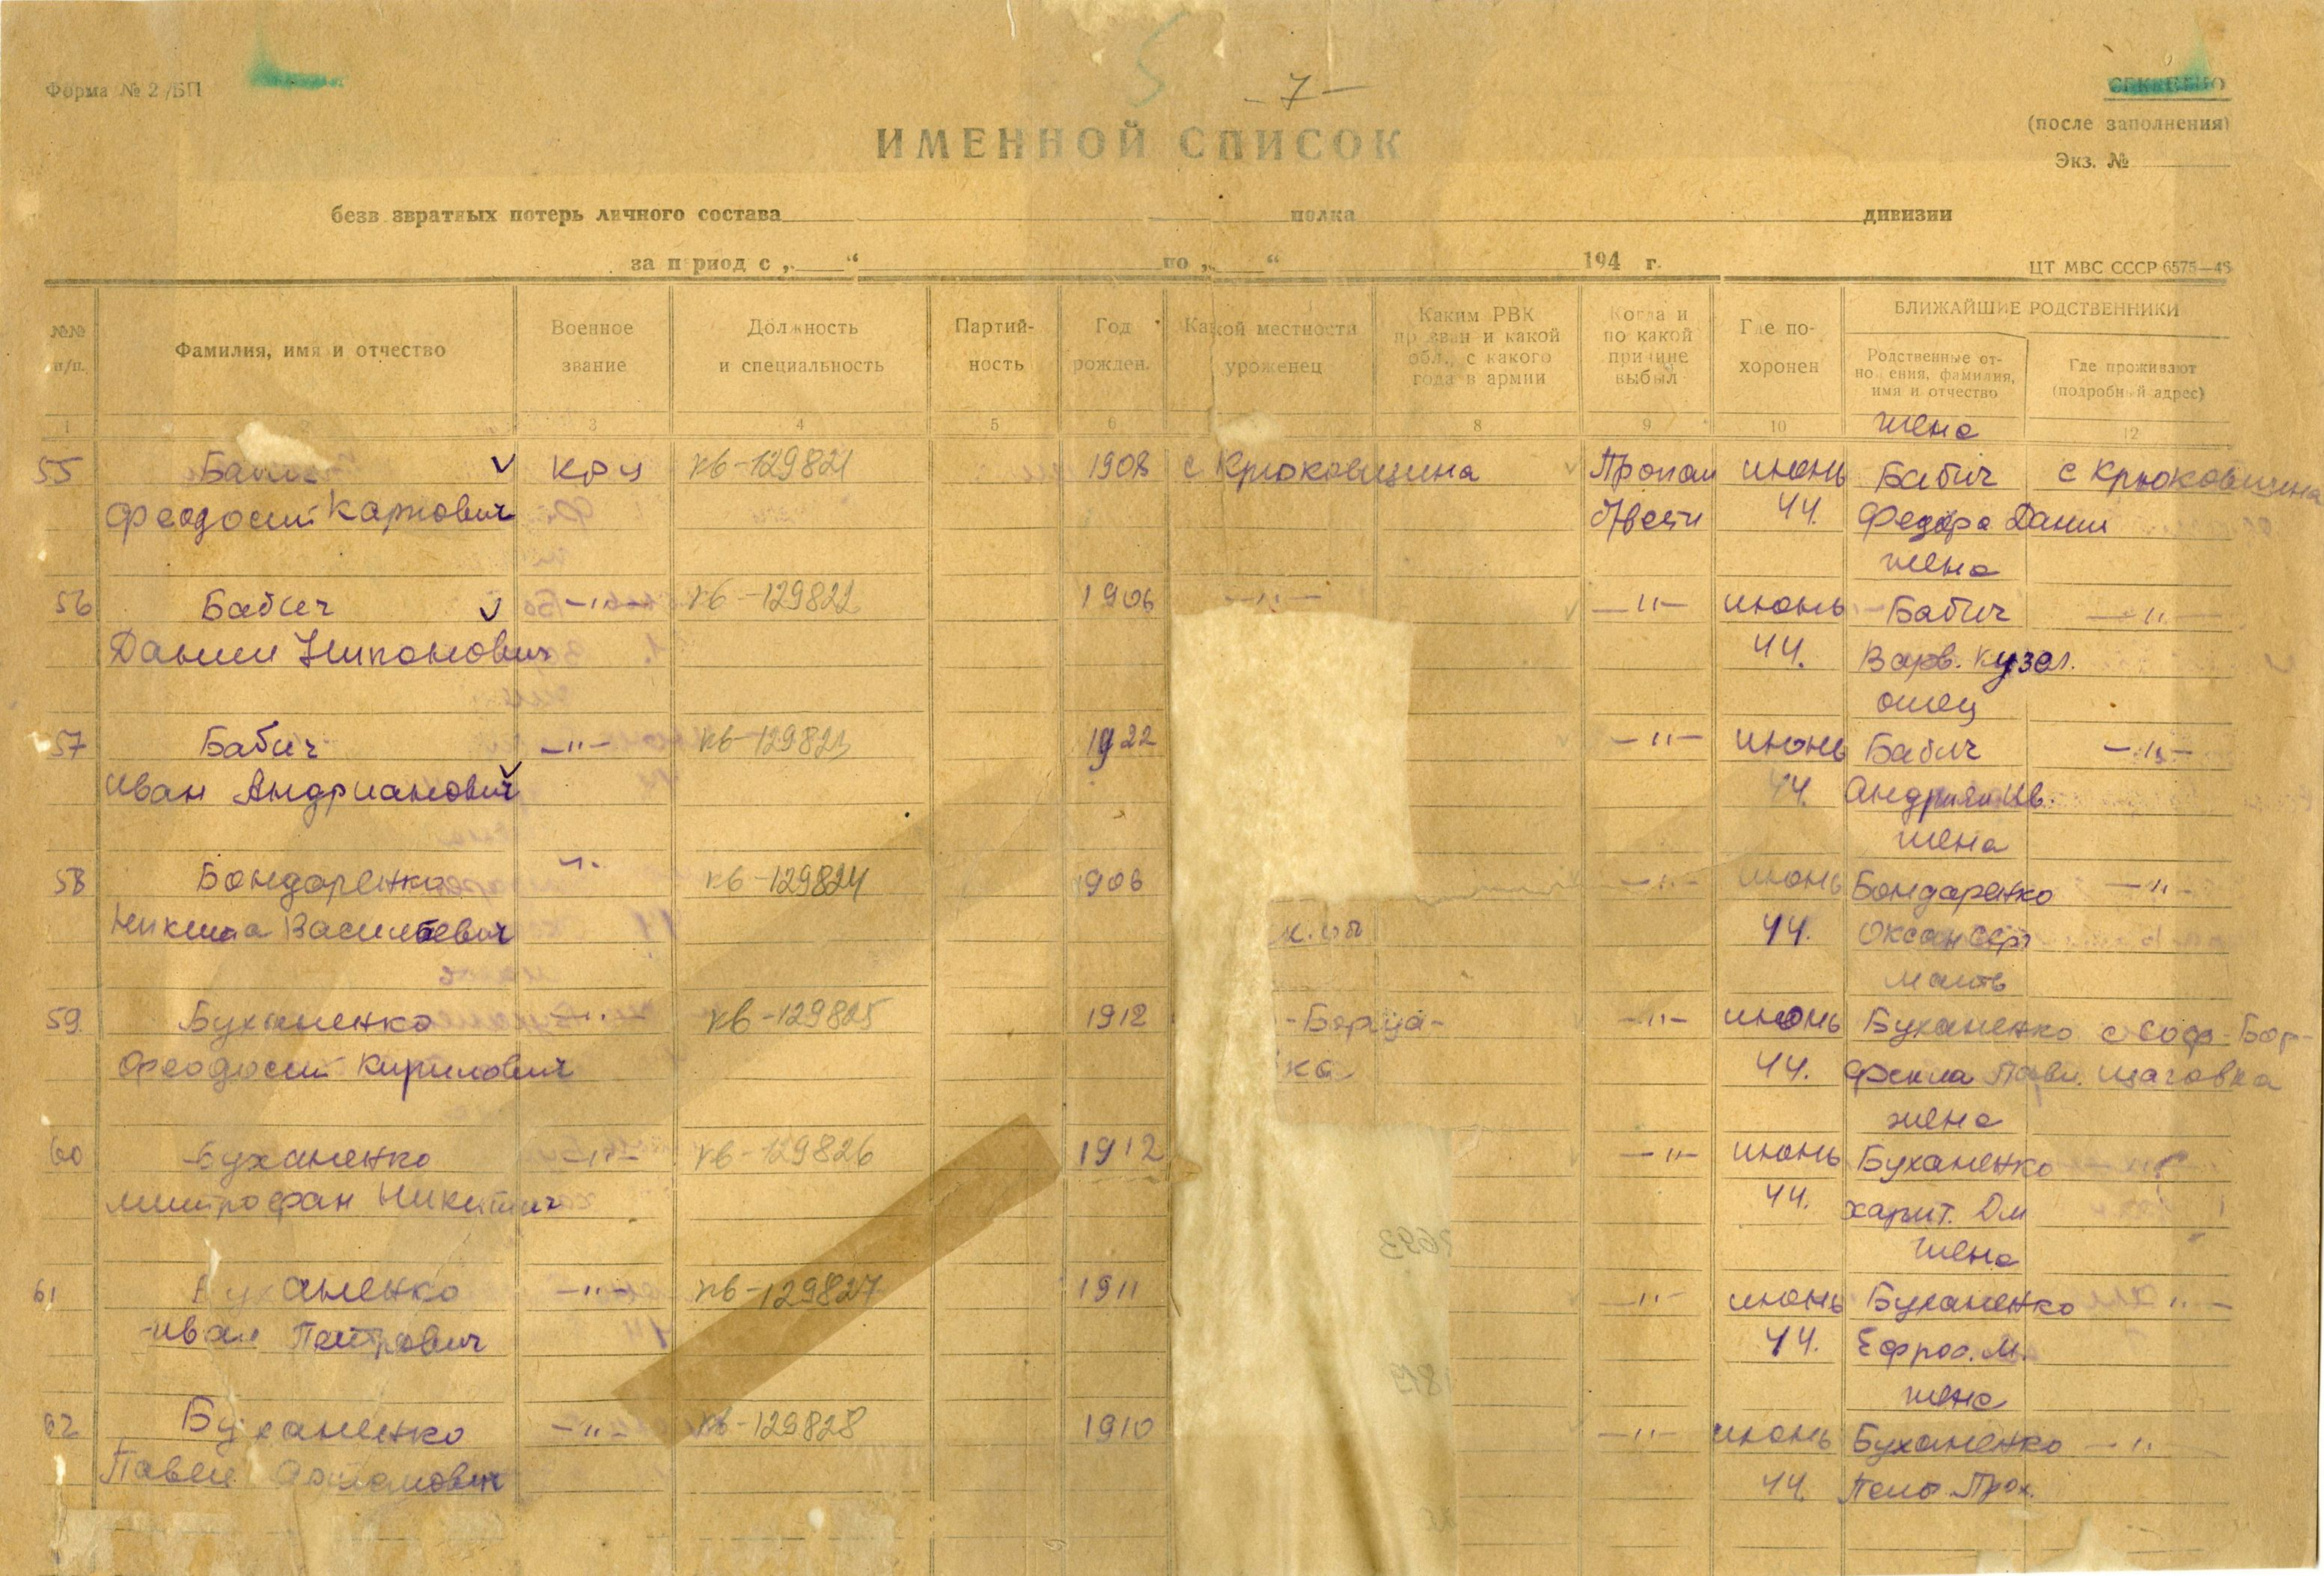 Форма № 2/БП
- 7 -
СЕКРЕТНО
(после заполнения)
Экз. №
ИМЕННОЙ СПИСОК
безв звратных потерь личного состава полка дивизии
за период с „ “ по „ “ 194 г.
ЦТ МВС СССР 6575—45
№№ п/п.
Фамилия, имя и отчество
Военное звание
Должность и специальность
Партий-ность
Год рожден.
Какой местности уроженец
Каким РВК призван и какой обл., с какого года в армии
Когда и по какой причине выбыл
Где по-хоронен
БЛИЖАЙШИЕ РОДСТВЕННИКИ
Родственные от-ношения, фамилия, имя и отчество
Где проживают (подробный адрес)
1 3 4 5 6 8 9 10 12
жена
55 Бабич кр-ц кв-129821 1908 с Крюковщина Пропал июнь Бабич с Крюковщина
Феодосий Карпович б/вести 44. Федора Данил
жена
56 Бабич -"- кв-129822 1906 -"- -"- июнь Бабич -"-
Даниил Никонович 44. Варв. Кузм.
отец
57 Бабич -"- кв-129823 1922 -"- июнь Бабич -"-
Иван Андрианович 44. Андриян Ив.
жена
58 Бондаренко -"- кв-129824 1906 -"- июнь Бондаренко -"-
Никита Васильевич 44. Оксан Сер
мать
59. Буханенко -"- кв-129825 1912 -Борща- -"- июнь Буханенко с Соф-Бор-
Феодосий Кирилович ка 44. Фекла Павл. щаговка
жена
60 Буханенко -"- кв-129826 1912 -"- июнь Буханенко
Митрофан Никитич 44. Харит. Дм
жена
61 Буханенко -"- кв-129827 1911 -"- июнь Буханенко -"-
Иван Петрович 44. Ефрос. М.
жена
62 Буханенко -"- кв-129828 1910 -"- июнь Буханенко -"-
Павел 44. Прох.